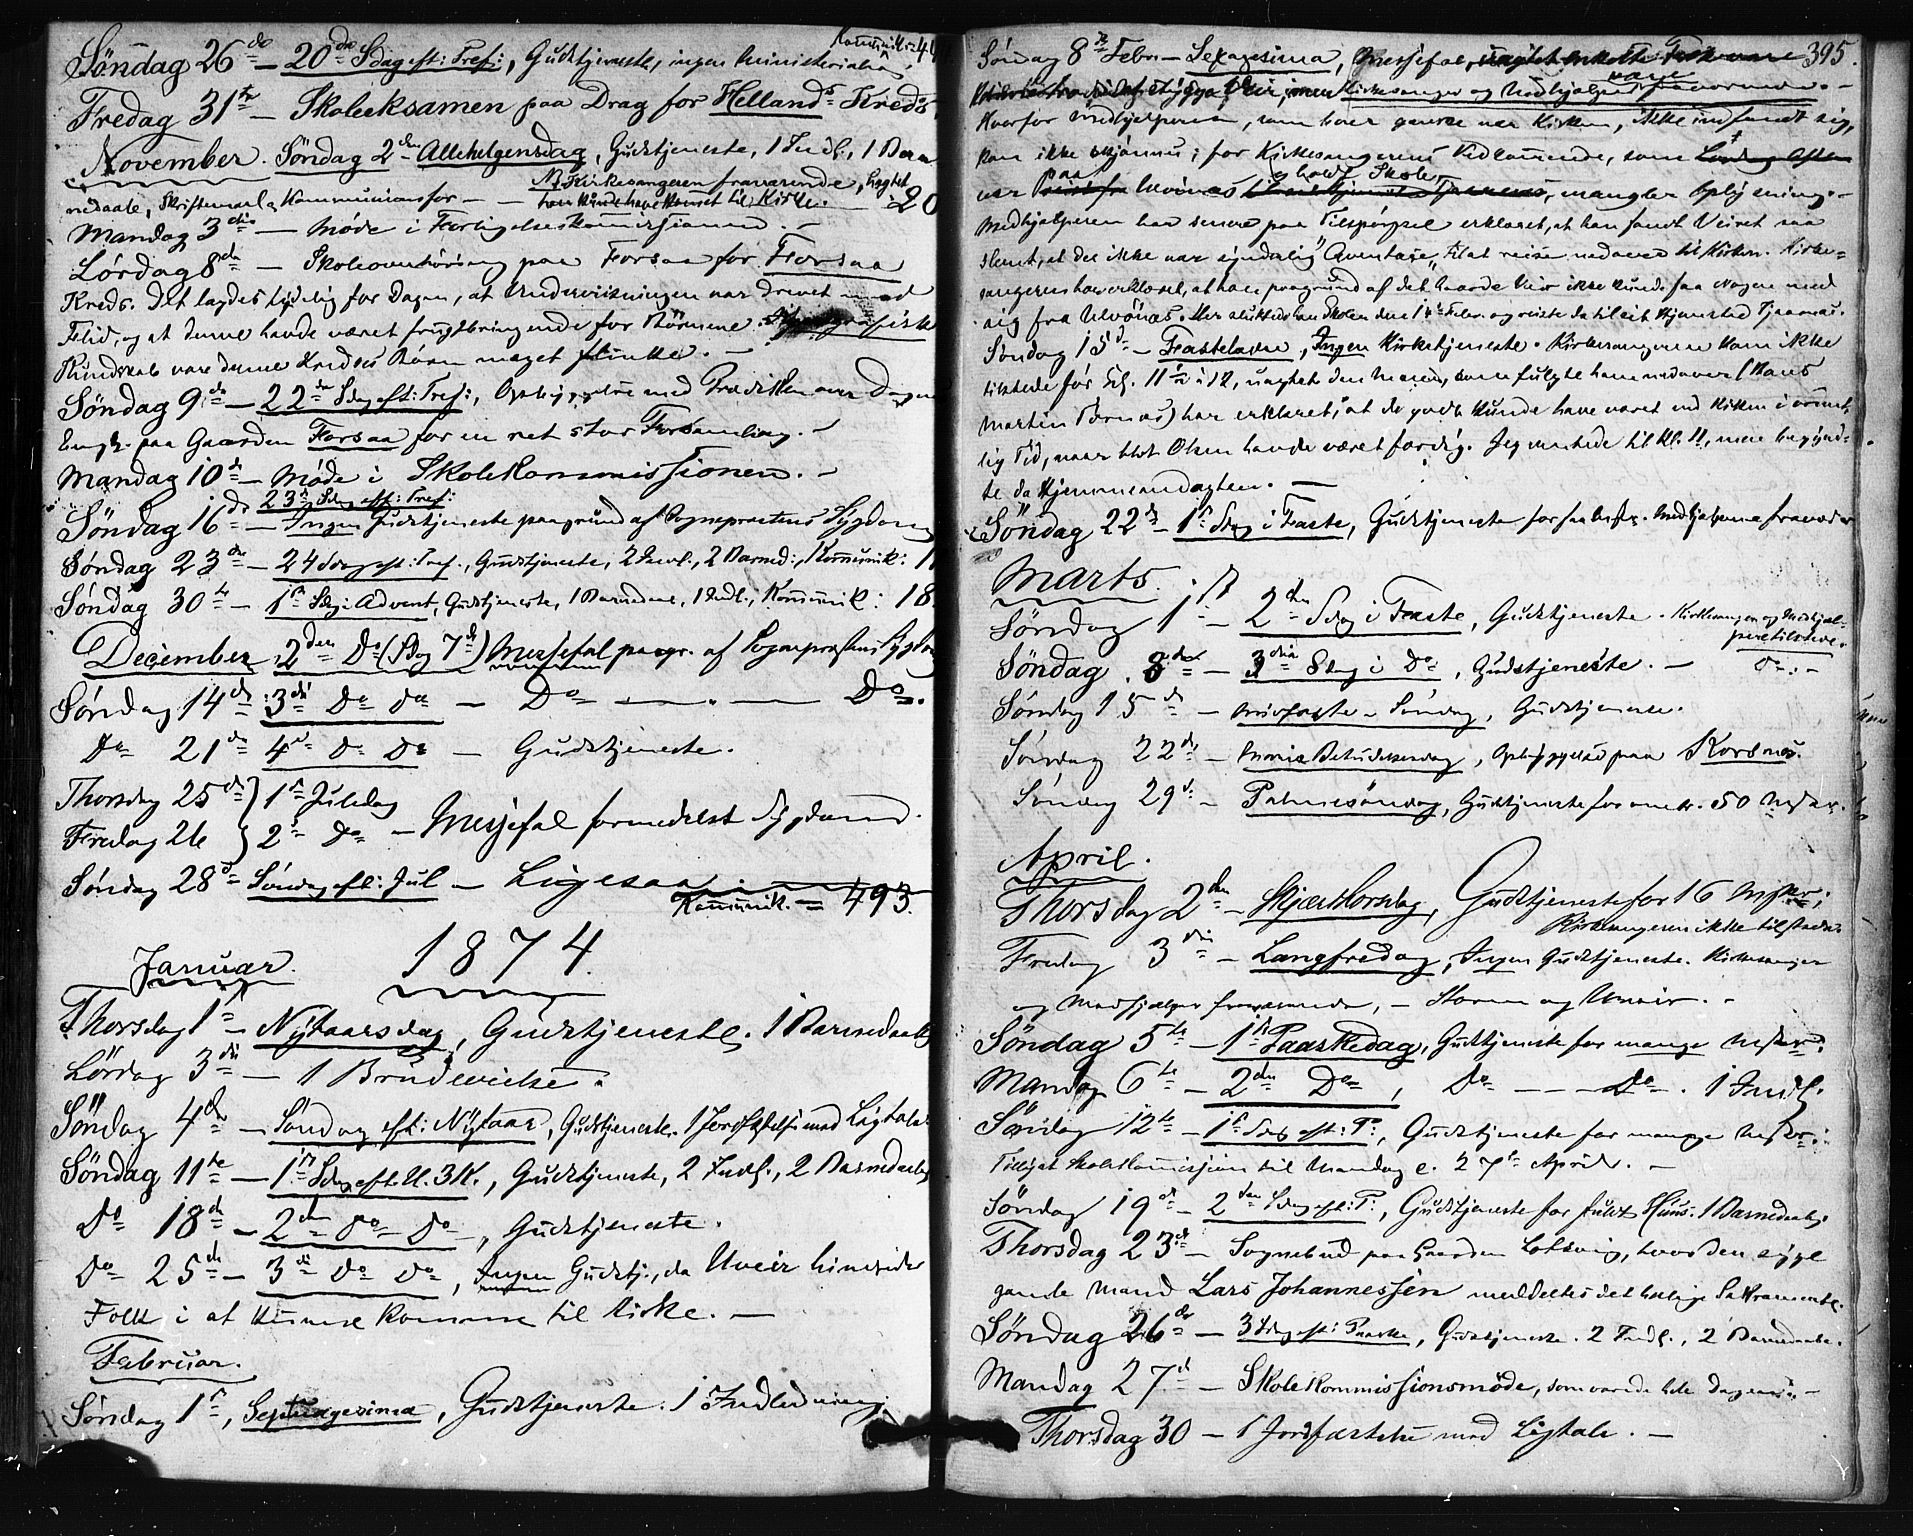 Kommunik: 4
Søndag 26de – 20de Sdag eft: Tref:, Gudstjeneste, ingen Ministerialia
Fredag 31te – Skoleeksamen paa Drag for Hellands Kreds
November. Søndag 2den Allehelgensdag, Gudstjeneste, 1 Indl., 1 Barn
NB Kirkesangeren fraværende, hagtet
nedaabt, Skriftemaal & Kommunion for – – han kunde have kommet til Kirke. 20
Mandag 3die – Møde i Forligelseskommissionen. –
Lørdag 8de – Skoleoverhøring paa Forsaa for Forsaa
Kreds. Det lagdes tydelig for Dagen, at Undervisningen var drevet med
Flid, og at denne havde været frugtbringende for Børnene.
Kundskab vare denne Kredses Børn meget flinke. –
Søndag 9de – 22de Sdag eft: Tref:, Opbyggelse med Prædiken over Dagens
Evgl. paa Gaarden Forsaa for en ret stor Forsamling. –
Mandag 10de – Møde i Skolekommissionen. –
23de Sdag eft: Tref:
Søndag 16de – Ingen Gudstjeneste paagrund af Sognepræstens Sygdom
Søndag 23de – 24 Sdag eft: Tref., Gudstjeneste, 2 Indl., 2 Barned:, Kommunik: 1
Søndag 30te – 1ste Sdag i Advent, Gudstjeneste, 1 Barnedaab, 1 Indl., Kommunik: 18
December 2den Do (Sdag 7de) Messefal paagr. af Sognepræstens Sygdom
Søndag 14de 3die Do Do – Do – . – Do.
Do 21de 4de Do Do – Gudstjeneste.
Thorsdag 25de 1ste Juledag
Fredag 26 2den Do – Messefal formedelst Sygdom.
Søndag 28de Søndag eft: Jul – Ligesaa.
Kommunik. = 493.
1874.
Januar.
Thorsdag 1ste – Nytaarsdag, Gudstjeneste. 1 Barnedaab
Lørdag 3die – 1 Brudevielse.
Søndag 4de – Søndag eft: Nytaar, Gudstjeneste. 1 Jordfæstelse med Ligtale
Søndag 11te – 1ste Sdag eft. H. 3 K., Gudstjeneste, 2 Indl., 2 Barnedaab
Do 18de – 2den Do Do, Gudstjeneste.
Do 25de – 3die Do Do, Ingen Gudstj., da Uveir hindrede
Folk i at kunne komme til Kirke. –
Februar.
Søndag 1ste, Septuagesima, Gudstjeneste. 1 Indledning.
395.
Søndag 8de Febr. – Sexagesima, Messefal,
Kirkesanger og Medhjælper vare fraværende. –
Hvorfor Medhjelperen, som boer ganske nær Kirken, ikke indfandt sig,
kan ikke skjønnes; for Kirkesangerens Vedkommende, som
var paa Ulvønæs & holdt Skole, mangler Oplysning. –
Medhjælperen har senere paa Tilspørgsel erklæret, at han fandt Veiret saa
slemt, at det ikke var synderlig "Aventage" til at reise nedover til Kirken. Kirke-
sangeren har erklæret, at han paagrund af det haarde Veir ikke kunde faa Nogen med
sig fra Ulvønæs. Her sluttede han Skolen den 14de Febr. og reiste da til sit Hjemsted Tjaarnæs.
Søndag 15de – Fastelavn, Ingen Kirketjeneste. Kirkesangeren kom ikke
tilstede før Kl. 11½ à 12, uagtet den Mand, som fulgte ham nedover (Hans
Martin Børnæs) har erklæret, at de godt kunde have været ved Kirken i ordent-
lig Tid, naar blot Olsen havde været færdig. Jeg ventede til Kl. 11, men begynd-
te da Hjemmeandagten. –
Søndag 22de – 1ste Sdag i Faste, Gudstjeneste for faa Msker. Medhjelperen fraværende
Marts.
Søndag 1ste – 2den Sdag i Faste, Gudstjeneste. Kirkesanger og Medhjæl-
per tilstede.
Søndag 8de – 3die Sdag i Do, Gudstjeneste. – Do. –
Søndag 15de – Midfaste-Søndag, Gudstjeneste.
Søndag 22de – Mariæ Bebudelsesdag, Opbyggelse paa Korsnæs.
Søndag 29de – Palmesøndag, Gudstjeneste for omtr. 50 Msker.
April.
Thorsdag 2den – Skjærthorsdag, Gudstjeneste for 16 Msker;
Kirkesangeren ikke tilstede.
Fredag 3die – Langfredag, Ingen Gudstjeneste. Kirkesanger
og Medhjælper fraværende, – Storm og Uveir. –
Søndag 5te – 1ste Paaskedag, Gudstjeneste for mange Msker.
Mandag 6te – 2den Do, Do – – Do. 1 Indl.
Søndag 12te – 1ste Sdag eft: P:, Gudstjeneste for mange Msker:
Tillyst Skolekommission til Mandag e. 27de April. –
Søndag 19de – 2den Sdag eft: P:, Gudstjeneste for fuldt Huus. 1 Barnedaab.
Thorsdag 23de – Sognebud paa Gaarden Lotsvig, hvor den syge
gamle Mand Lars Johannessen meddeltes det hellige Sakramente.
Søndag 26de – 3 Sdag eft: Paaske, Gudstjeneste. 2 Indl., 2 Barnedaab.
Mandag 27de – Skolekommissionsmøde, som varede hele Dagen. –
Thorsdag 30 – 1 Jordfæstelse med Ligtale. –